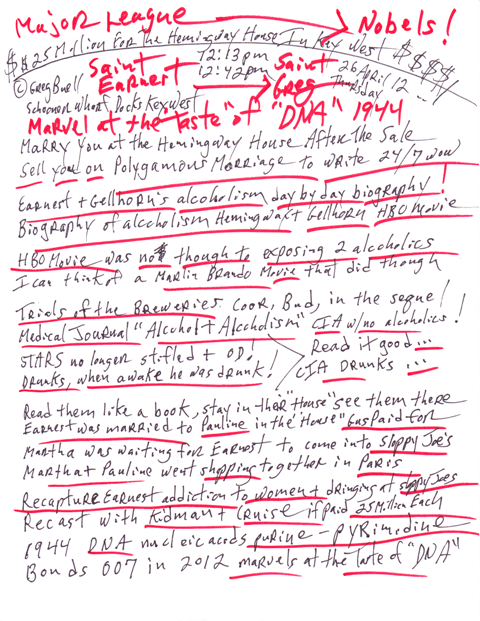 Major League Nobels!
$$25 Million For the Hemingway House In Key West $$$$/
12:13pm
12:42pm
Saint Earnest
Saint Greg
26 April 12
Thursday
© Greg Buell
Schooner Wharf, Docks Key West
Marvel at the "Taste" of "DNA" 1944
Marry You at the Hemingway House After The Sale
Sell you on Polygamous Morriage to write 24/7 wow
Earnest + Gellhorn's alcoholism day by day biography!
Biography of alcoholism Hemingway + Gellhorn HBO Movie
HBO Movie was not though to exposing 2 alcoholics
I can think of a Marlin Brando Movie that did though
Trials of the Breweries. Coor, Bud, in the seque!
Medical Journal "Alcohol + Alcoholism" CIA w/no alcoholics!
STARS no longer stifled + OD!
Read it good...
Drunks, when awake he was drunk!
CIA Drunks ...
Read them like a book, stay in their "House" see them there
Earnest was married to Pauline in the "House" Gus paid for
Martha was waiting for Earnest to come into Sloppy Joe's
Martha + Pauline went shopping together in Paris
Recapture Earnest addiction to women + dringing at Sloppy Joes
Recast with Kidman + Cruise if paid 25 Million Each
1944 DNA nucleic acids purine - pyrimidine
Bonds 007 in 2012 marvels at the Taste of "DNA"